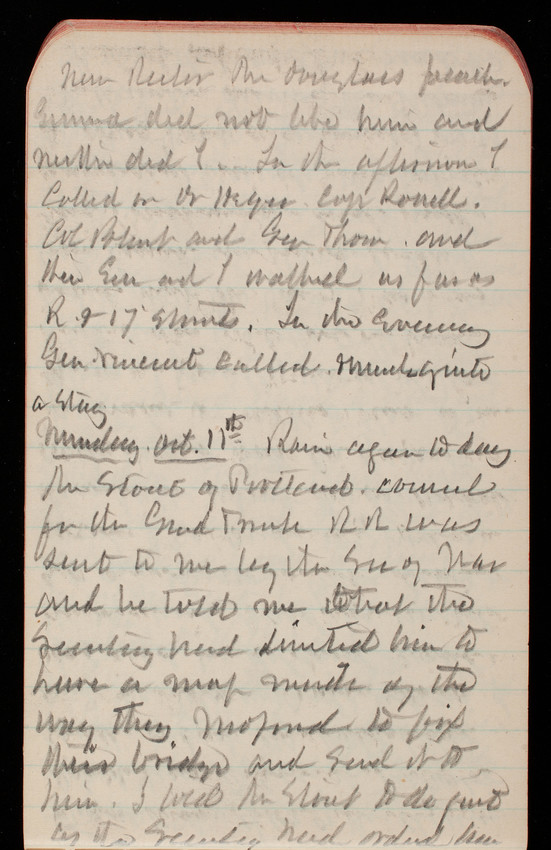 new Rector Mr Douglass preach.
Emma did not like him and
neither did I. In the afternoon I
called on Dr Hegen Capt Rowell.
Col Poland and Gen Thom. and
then Gen and I walked as far as
R & 17 Streets. In the evening
Gen Vincent called made quite
a stay
Monday. Oct. 11th Rain again to day
Mr Stout of Portland. counsel
for the Grand Trunk R R was
sent to me by the Sec of War
and he told me that the
Secretary had directed him to
have a map made of the
way they proposed to fix
their bridge and send it to
him. I told Mr Stout to do just
as the Secretary had ordered him